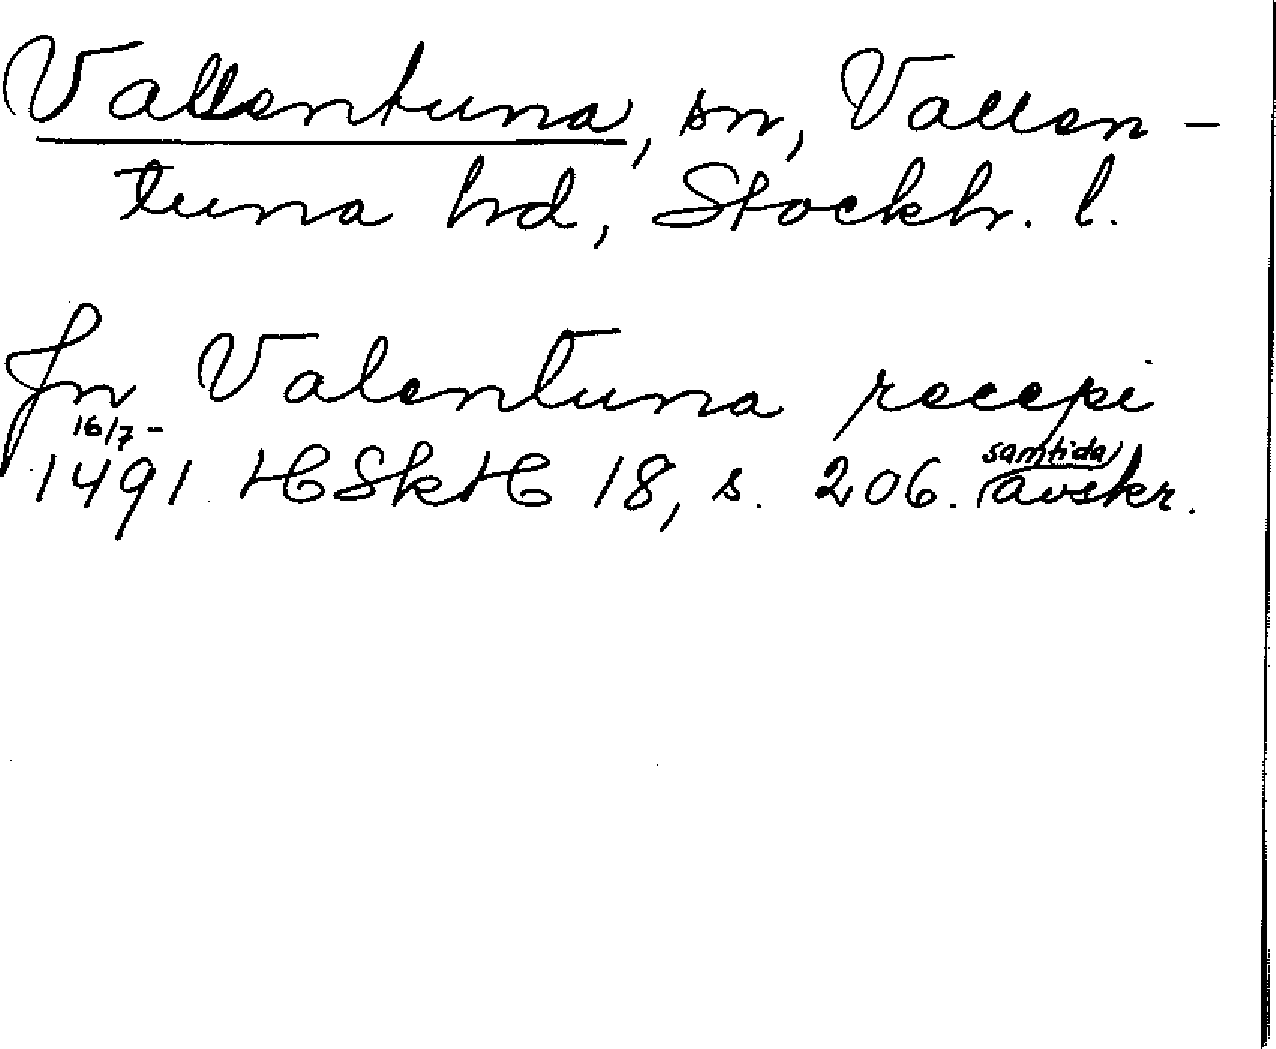 Vallentuna, sn, Vallen-
tuna hd, Stockh. l.
Jn Valentuna recepi
16/7-
1491 HSkH 18, s. 206. samtida avskr.